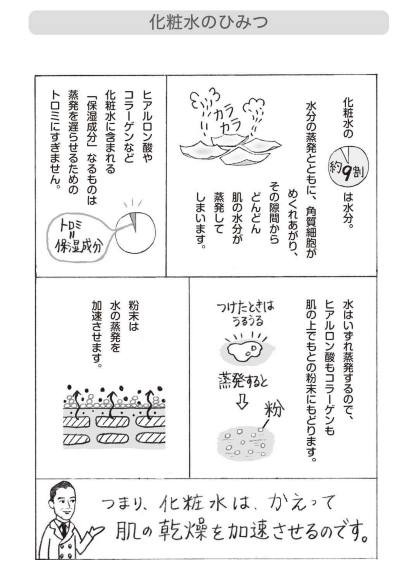 化粧水のひみつ
化粧水の
約9割
は水分。
水分の蒸発とともに、角質細胞が
めくれあがり、
その隙間から
どんどん
肌の水分が
蒸発して
しまいます。
カラ
カラ
ヒアルロン酸や
コラーゲンなど
化粧水に含まれる
「保湿成分」なるものは
蒸発を遅らせるための
トロミにすぎません。
トロミ
=
保湿成分
水はいずれ蒸発するので、
ヒアルロン酸もコラーゲンも
肌の上でもとの粉末にもどります。
つけたときは
うるうる
蒸発すると
粉
粉末は
水の蒸発を
加速させます。
つまり、化粧水は、かえって
肌の乾燥を加速させるのです。